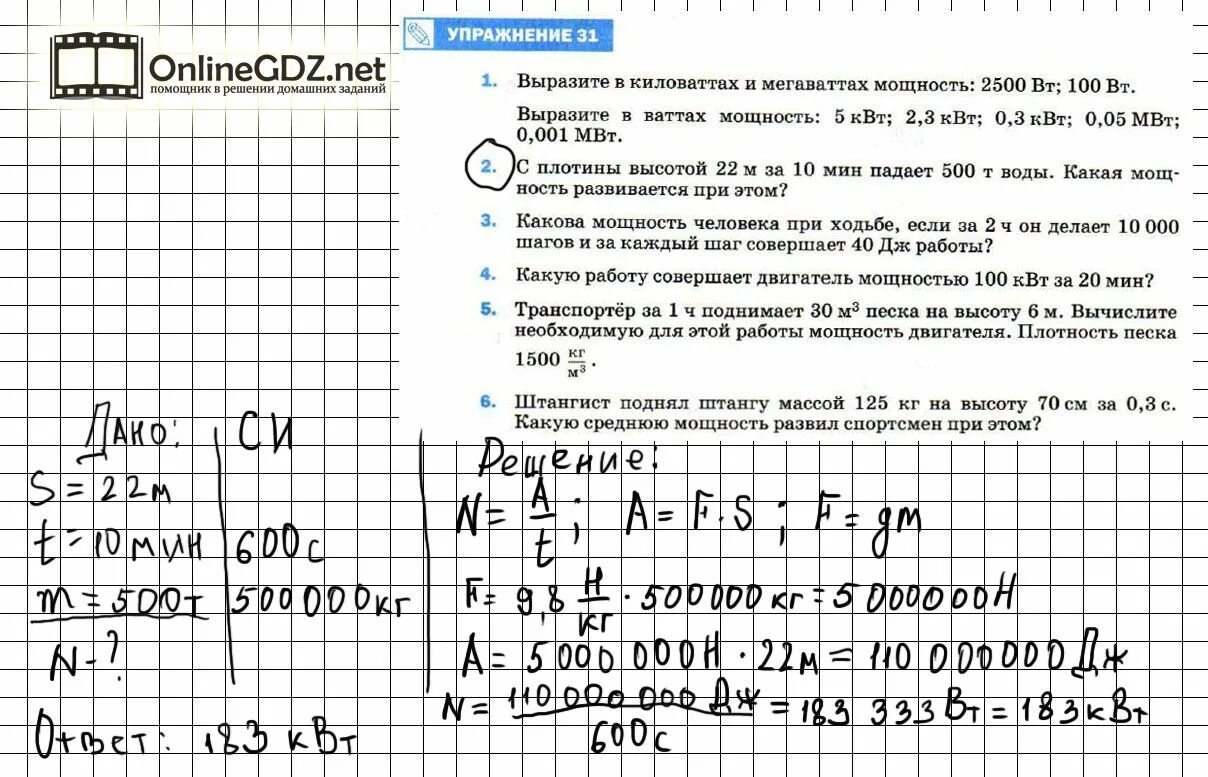 OnlineGDZ.net
помощник в решении домашних заданий
УПРАЖНЕНИЕ 31
1. Выразите в киловаттах и мегаваттах мощность: 2500 Вт; 100 Вт.
Выразите в ваттах мощность: 5 кВт; 2,3 кВт; 0,3 кВт; 0,05 МВт;
0,001 МВт.
2. С плотины высотой 22 м за 10 мин падает 500 т воды. Какая мощ-
ность развивается при этом?
3. Какова мощность человека при ходьбе, если за 2 ч он делает 10 000
шагов и за каждый шаг совершает 40 Дж работы?
4. Какую работу совершает двигатель мощностью 100 кВт за 20 мин?
5. Транспортёр за 1 ч поднимает 30 м³ песка на высоту 6 м. Вычислите
необходимую для этой работы мощность двигателя. Плотность песка
1500 кг/м³.
6. Штангист поднял штангу массой 125 кг на высоту 70 см за 0,3 с.
Какую среднюю мощность развил спортсмен при этом?
Дано: СИ
S = 22м
t = 10 мин 600с
m = 500т 500000кг
N - ?
Ответ: 183 кВт
Решение:
N = A/t; A = F·S; F = gm
F = 9,8 Н/кг · 500000кг = 5000000Н
A = 5000000Н · 22м = 110000000Дж
N = 110000000Дж/600с = 183 333Вт = 183кВт